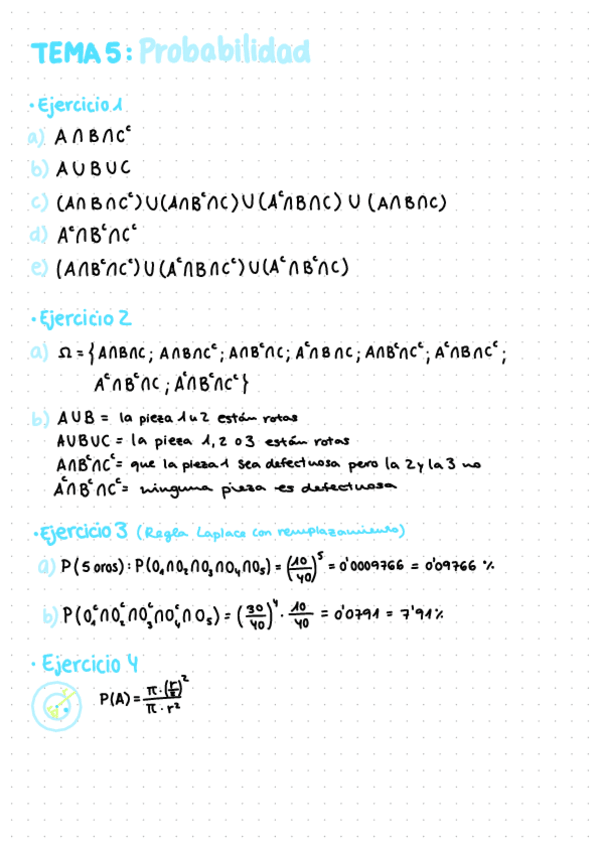 TEMA 5: Probabilidad
· Ejercicio 1
a) A∩B∩Cᶜ
b) A∪B∪C
c) (A∩B∩Cᶜ)∪(A∩Bᶜ∩C)∪(Aᶜ∩B∩C)∪(A∩B∩C)
d) Aᶜ∩Bᶜ∩Cᶜ
e) (A∩Bᶜ∩Cᶜ)∪(Aᶜ∩B∩Cᶜ)∪(Aᶜ∩Bᶜ∩C)
· Ejercicio 2
a) Ω = {A∩B∩C; A∩B∩Cᶜ; A∩Bᶜ∩C; Aᶜ∩B∩C; A∩Bᶜ∩Cᶜ; Aᶜ∩B∩Cᶜ;
Aᶜ∩Bᶜ∩C; Aᶜ∩Bᶜ∩Cᶜ}
b) A∪B = la pieza 1 u 2 están rotas
A∪B∪C = la pieza 1, 2 o 3 están rotas
A∩Bᶜ∩Cᶜ = que la pieza 1 sea defectuosa pero la 2 y la 3 no
Aᶜ∩Bᶜ∩Cᶜ = ninguna pieza es defectuosa
· Ejercicio 3 (Regla Laplace con remplazamiento)
a) P(5 oros): P(O₁∩O₂∩O₃∩O₄∩O₅) = (10/40)⁵ = 0'0009766 = 0'09766 %
b) P(O₁ᶜ∩O₂ᶜ∩O₃ᶜ∩O₄ᶜ∩O₅) = (30/40)⁴ · 10/40 = 0'0791 = 7'91%
· Ejercicio 4
P(A) = π·(r/2)² / π·r²